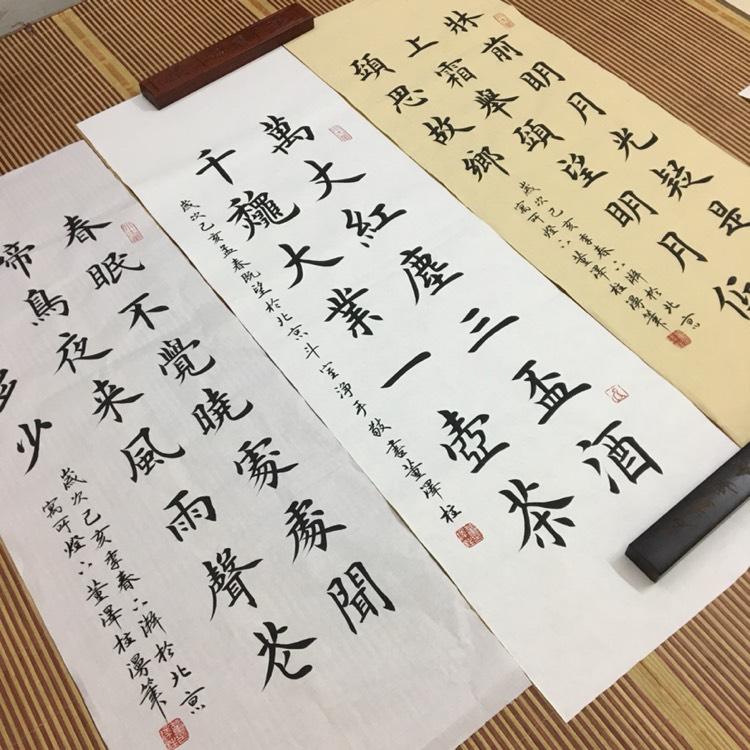 牀前明月光疑是
上霜舉頭望明月低
頭思故鄉
歲次己亥季春下澣於北京
寓所燈下董澤柱漫筆
萬丈紅塵三盃酒
千龝大業一壺茶
歲次己亥孟春既望於北京斗室淨手敬書董澤柱
春眠不覺曉處處聞
啼鳥夜来風雨聲花
多少
歲次己亥季春下澣於北京
寓所燈下董澤柱漫筆